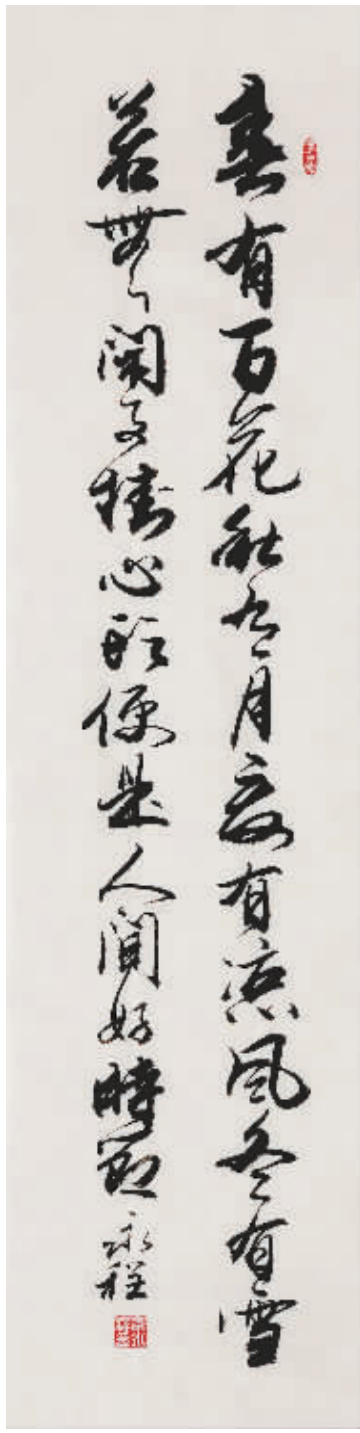 春有百花秋有月夏有涼風冬有雪
若無閑事掛心頭便是人間好時節 永程